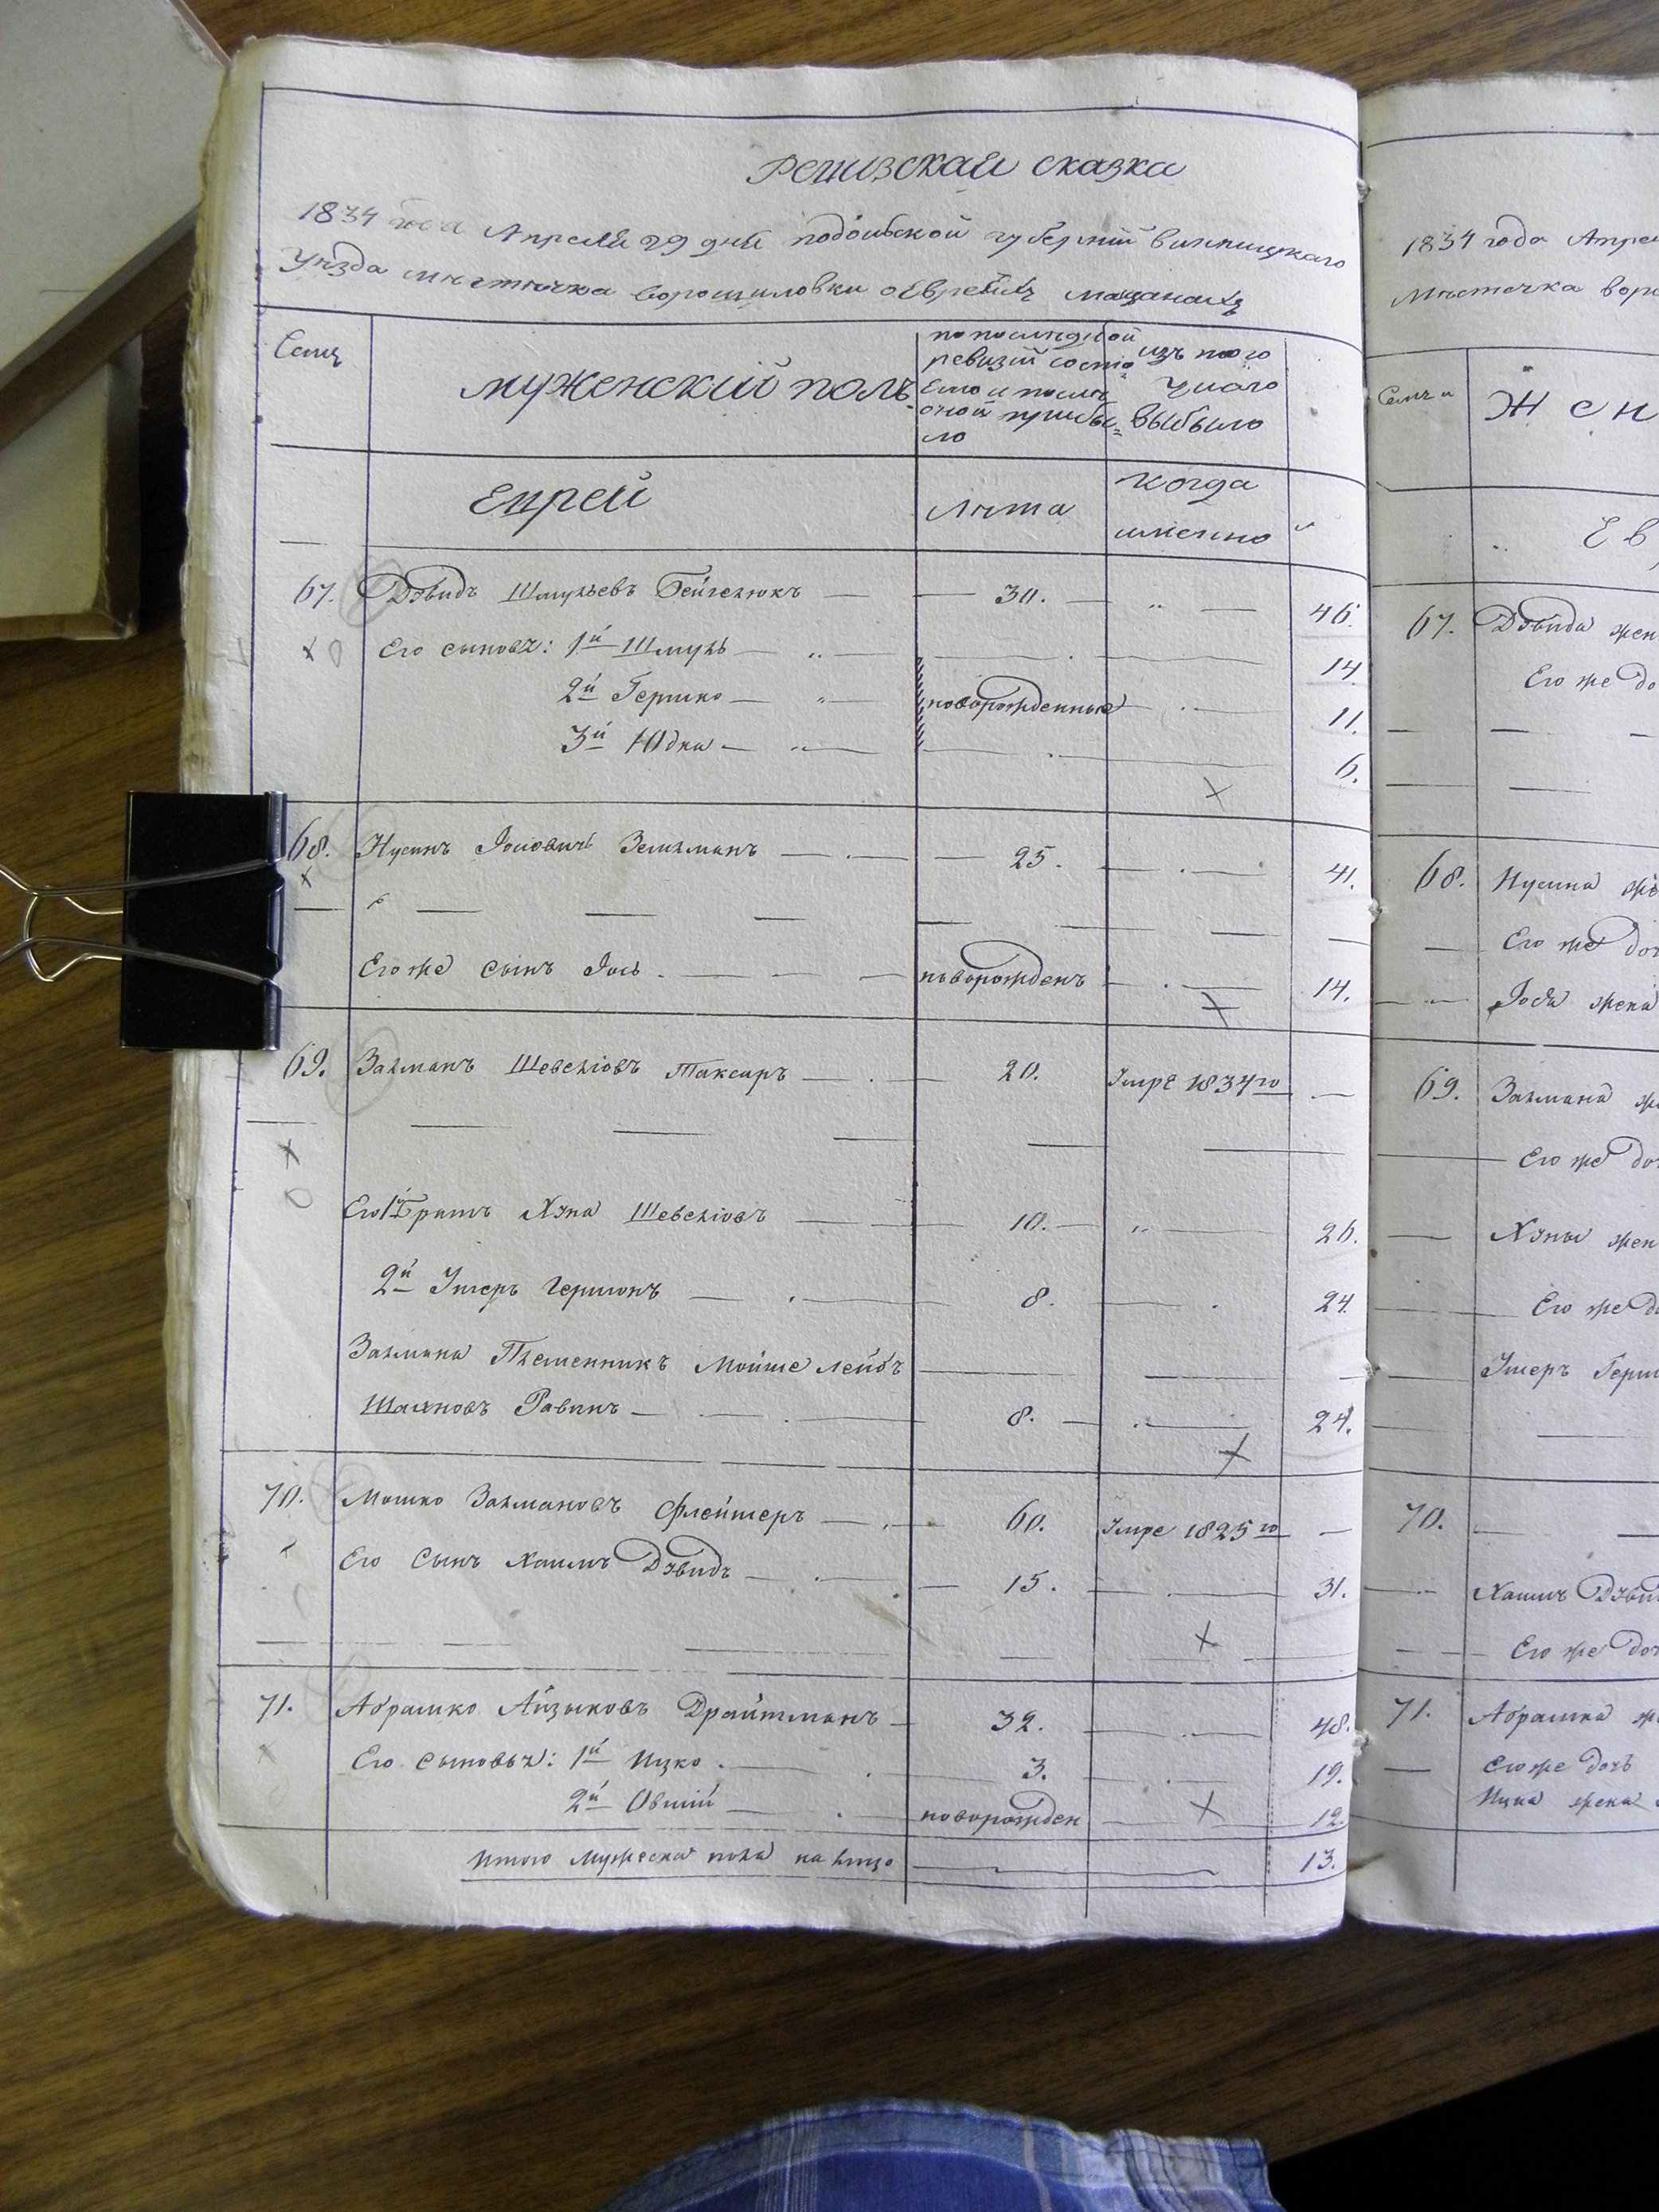 Ревизская сказка
1834 года Апреля 29 дня подольской губерний винницкаго
Уѣзда мѣстечка ворошиловки о Евреяхъ мещанахъ
Семи
муженский полъ
по послѣдной
ревизій состо
Яло и послѣ
оной прибы=
ло
изъ того
числа
выбыло
Еврей
лѣта
когда
имянно
67. Дувидъ Шмульевъ 30. 46.
Его сыновья: 1й Шмуль 14
2й Гершко новорожденные 11.
3й Юдка 6.
68. Нусинъ Іосіовичъ Зельманъ 25. 41.
Его же сынъ Іось новорожденъ 14.
69. Залманъ Шевеліовъ Таксиръ 20. Умре 1834го
Его 1й Братъ Хуна Шевеліовъ 10. 26.
2й Ушеръ Гершонъ 8. 24.
Залмана Племенникъ Мойше Лейбъ
Равинъ 8. 24.
70. Мошко Залмановъ Флейшеръ 60. Умре 1825го
Его Сынъ Хаимъ Дувидъ 15. 31.
71. Абрамко Айзыковъ Драйтманъ 32. 48.
Его сыновья: 1й Ицко 3. 19.
2й Овшій новорожден 12.
Итого Мужеска пола на лицо 13.
1834 года Апре
Мѣстечка воро
Семи
Жен
Ев
67. Дувида жен
Его же до
68. Нусина же
Его же доч
Іося жена
69. Залмана ж
Его же доч
Хуны жен
Его же до
Ушеръ Герш
70.
Хаимъ Дуви
Его же доч
71. Абрамка ж
Его же дочь
Ицка жена